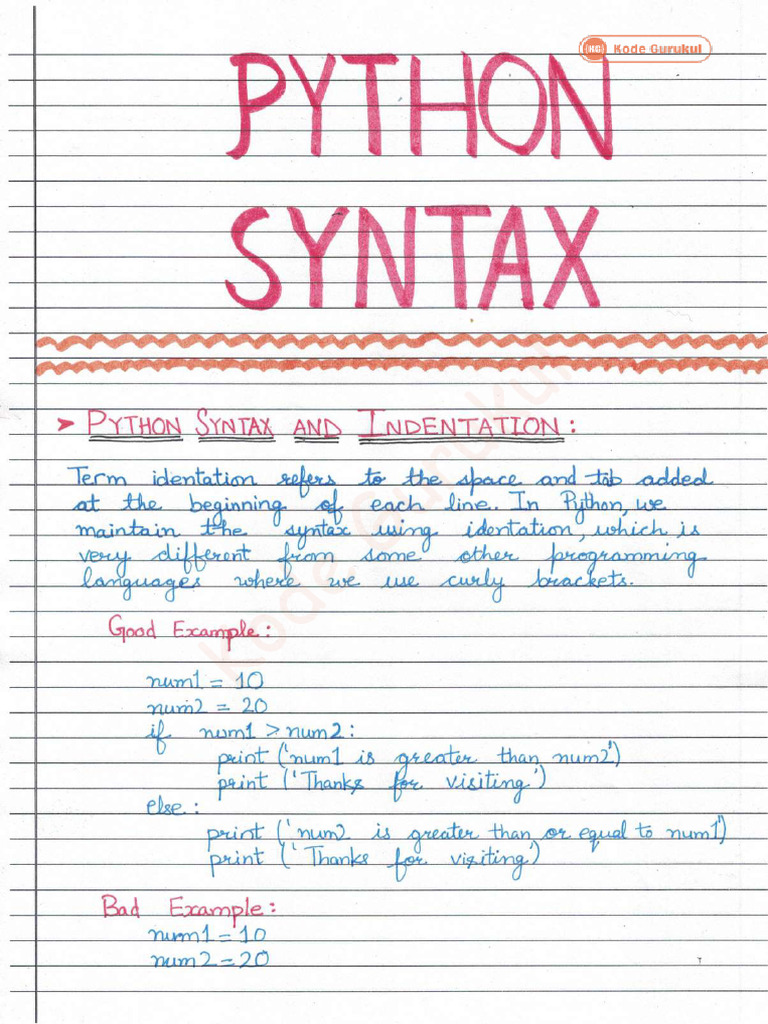 KG Kode Gurukul
PYTHON
SYNTAX
➤ PYTHON SYNTAX AND INDENTATION:
Term identation refers to the space and tab added
at the beginning of each line. In Python, we
maintain the syntax using identation, which is
very different from some other programming
languages where we use curly brackets.
Good Example:
num1 = 10
num2 = 20
if num1 > num2:
print ('num1 is greater than num2')
print ('Thanks for visiting')
else:
print ('num2 is greater than or equal to num1')
print ('Thanks for visiting')
Bad Example:
num1 = 10
num2 = 20
Kode Gurukul